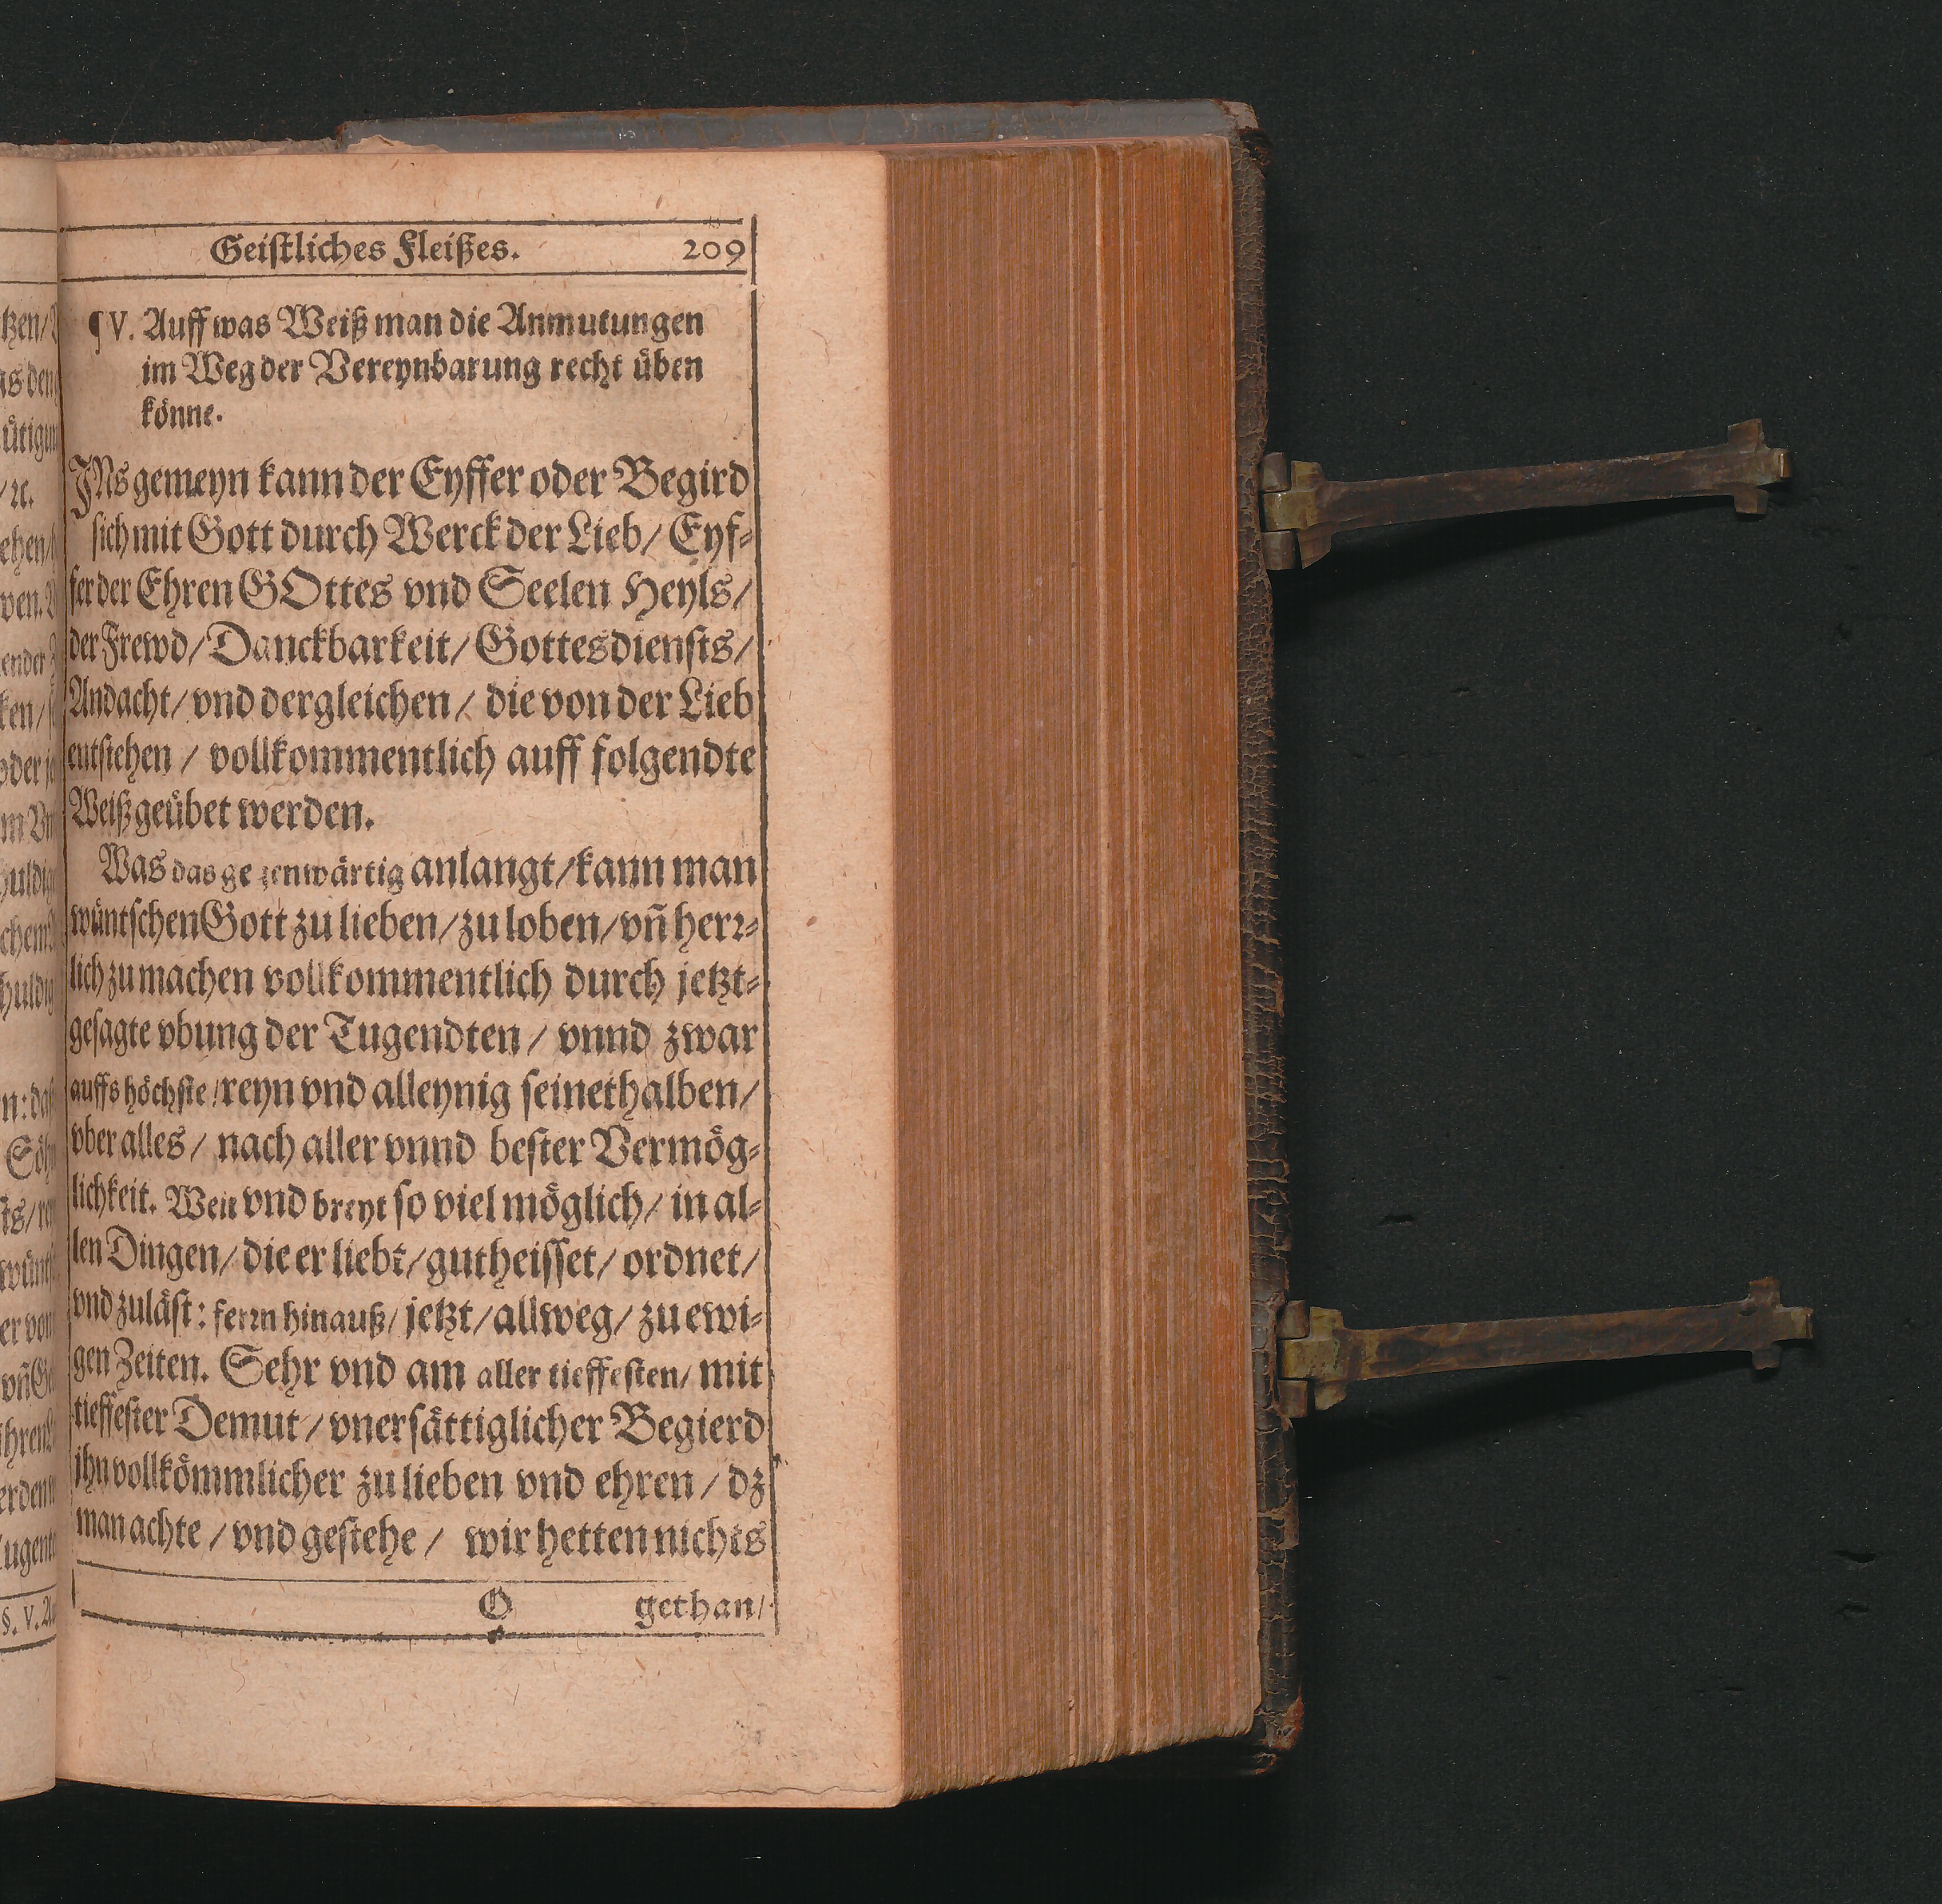 Geistliches Fleißes. 209
¶ V. Auff was Weiß man die Anmutungen
im Weg der Vereynbarung recht üben
könne.
INs gemeyn kann der Eyffer oder Begird
sich mit Gott durch Werck der Lieb/ Eyf-
fer der Ehren GOttes vnd Seelen Heyls/
der Frewd/ Danckbarkeit/ Gottesdiensts/
Andacht/ vnd dergleichen/ die von der Lieb
entstehen / vollkommentlich auff folgendte
Weiß geübet werden.
Was das gegenwärtig anlangt/kann man
wüntschen Gott zu lieben/zu loben/vñ herr-
lich zu machen vollkommentlich durch jetzt-
gesagte vbung der Tugendten / vnnd zwar
auffs höchste/reyn vnd alleynig seinethalben/
vber alles/ nach aller vnnd bester Vermög-
lichkeit. Weit vnd breyt so viel möglich/ in al-
len Dingen/ die er liebt/gutheisset/ ordnet/
vnd zuläst: ferrn hinauß/ jetzt/allweg/ zu ewi-
gen Zeiten. Sehr vnd am aller tieffesten/ mit
tieffester Demut/vnersättiglicher Begierd
jhn vollkömmlicher zu lieben vnd ehren/ dz
man achte / vnd gestehe / wir hetten nichts
O gethan/